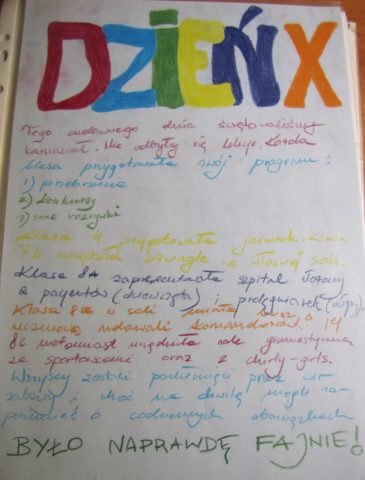 DZIEŃ X
Tego cudownego dnia świętowaliśmy
karnawał. Nie odbyły się lekcje. Każda
klasa przygotowała swój program:
1) przebrania
2) konkursy
3) inne rozrywki
Klasa 4 przygotowała jarmark. Klasa
7b urządziła dżunglę we własnej sali.
Klasa 8a zaprezentowała szpital złożony
z pacjentów (dziewczęta) i pielęgniarek (chłopcy).
Klasa 8c w sali
udawali komandosów. A
8b natomiast urządziła salę gimnastyczną
ze sportowcami oraz z chirly-girls.
Wszyscy zostali podchwyceni przez wir
zabawy i choć na chwilę mogli za-
pomnieć o codziennych obowiązkach.
BYŁO NAPRAWDĘ FAJNIE!